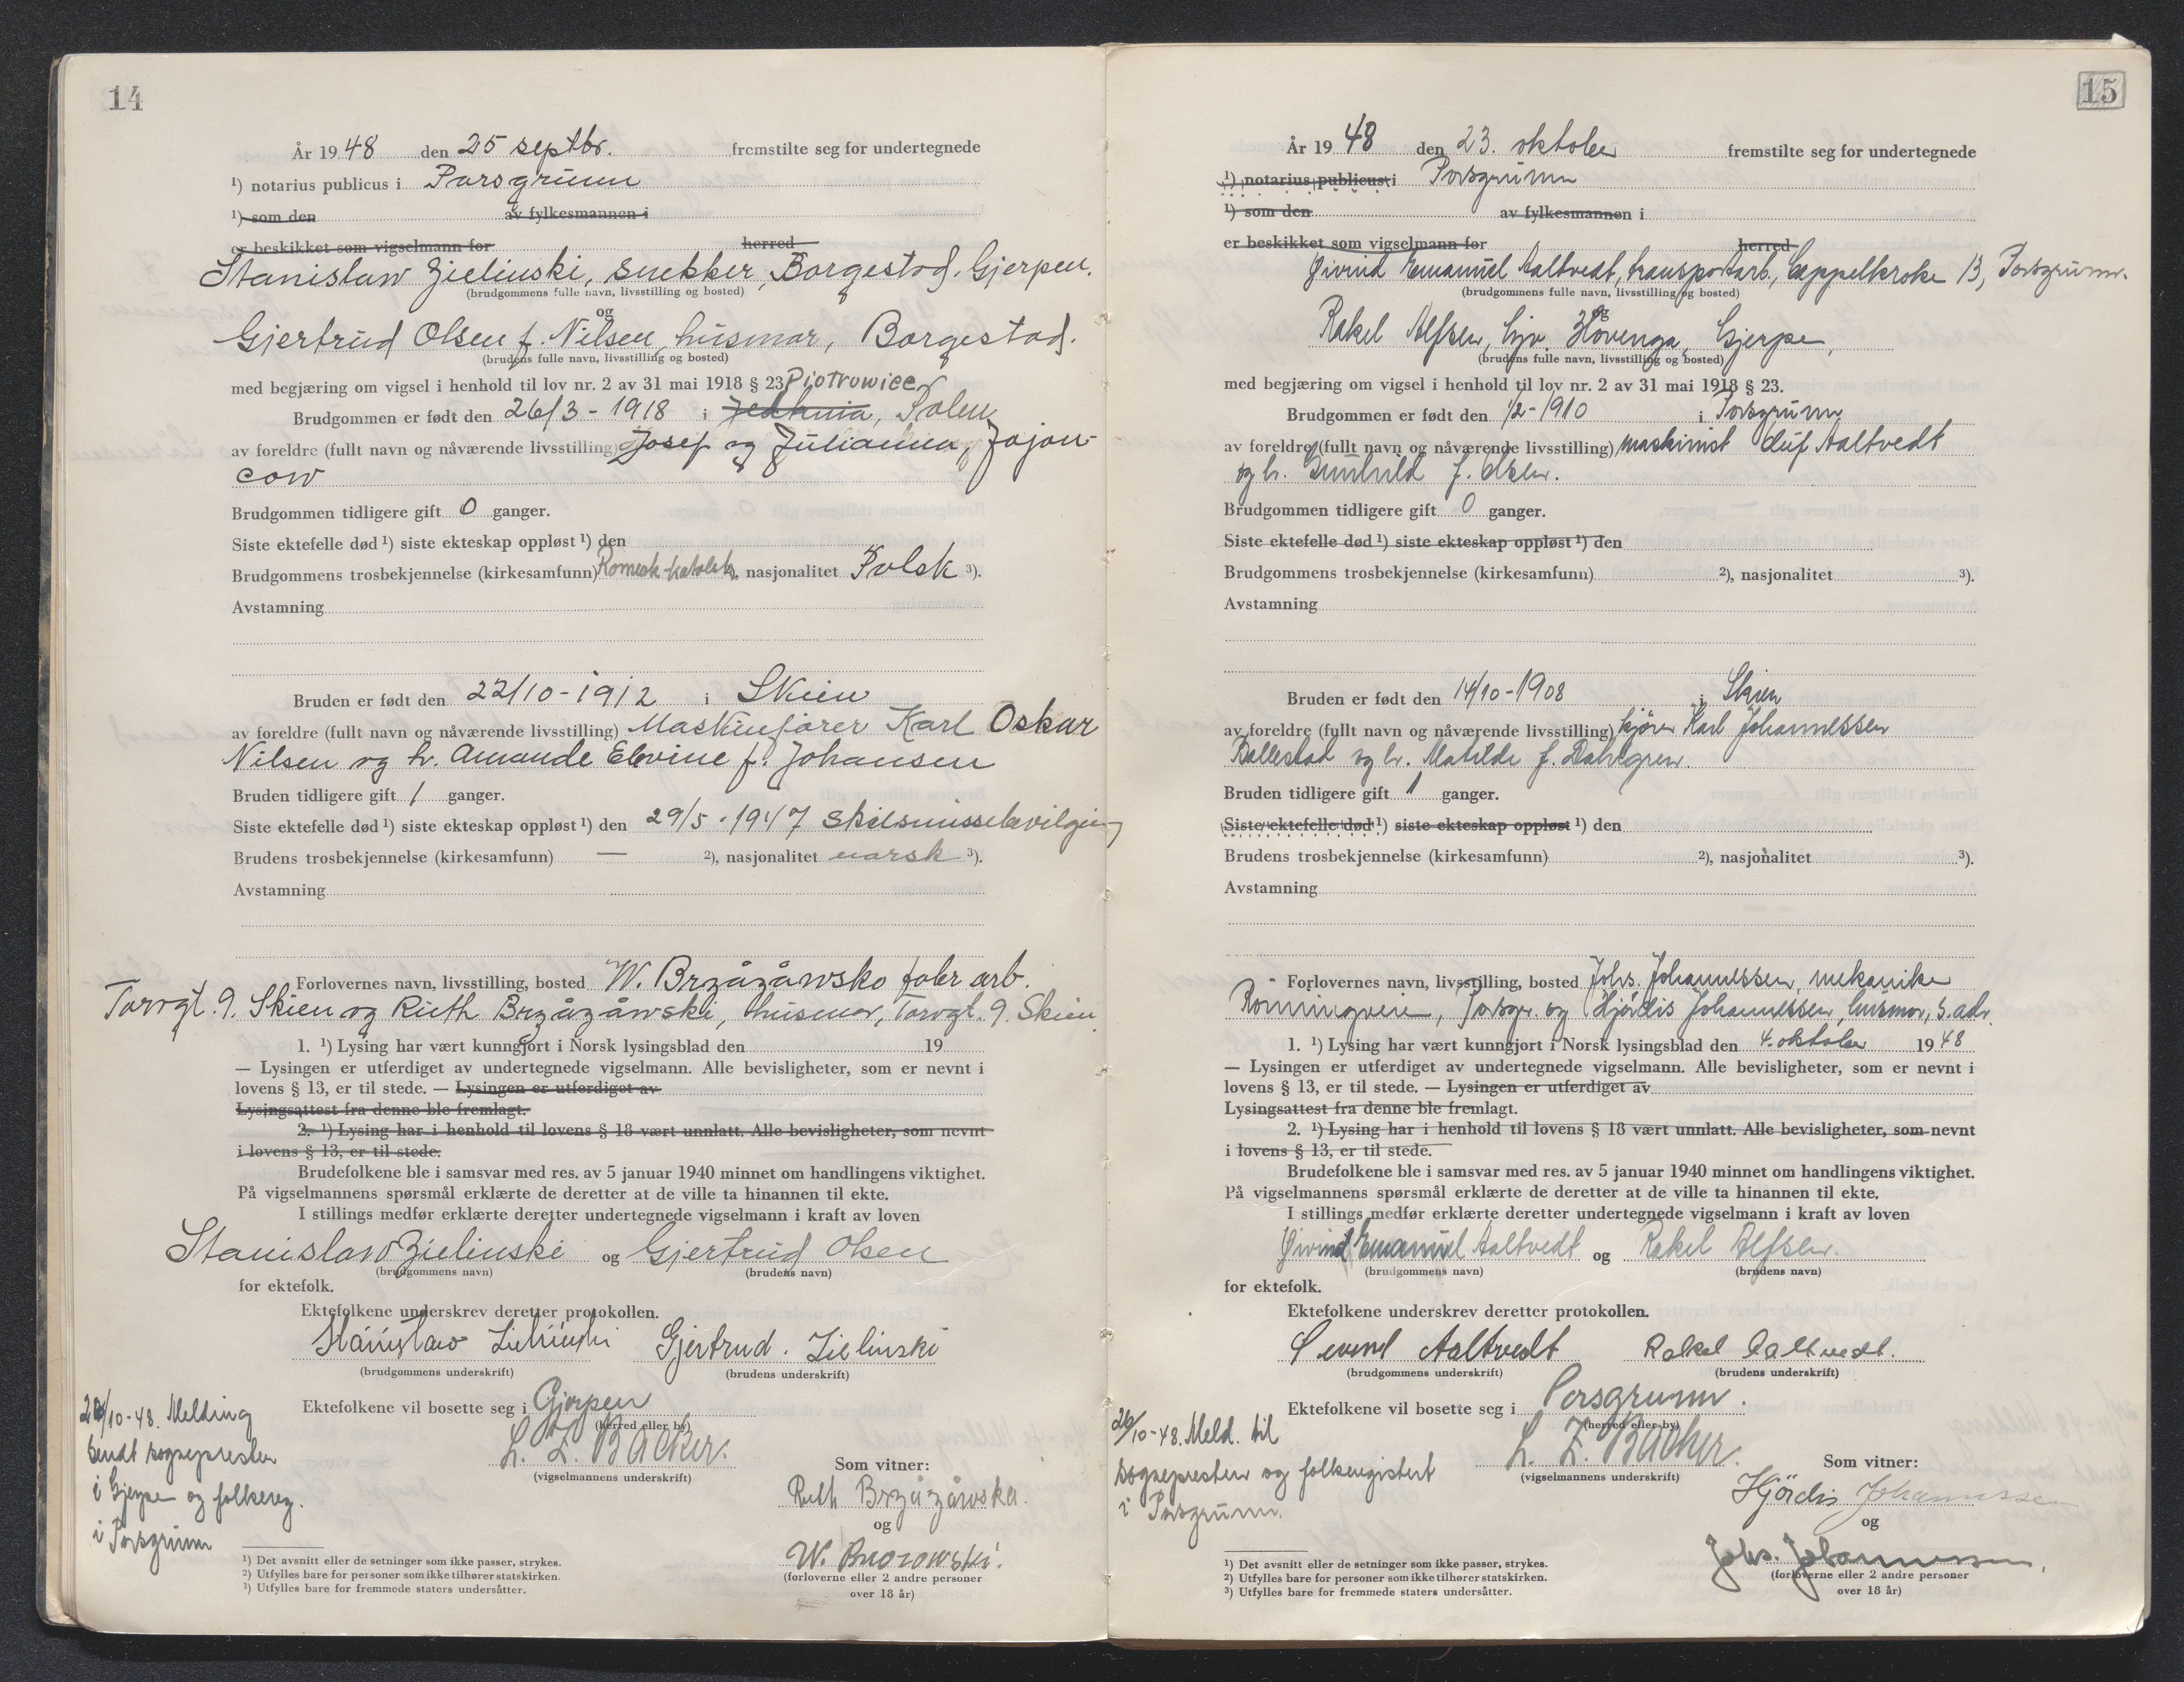 14
År 1948 den 25 septbr. fremstilte seg for undertegnede
¹) notarius publicus i Porsgrunn
¹) som den av fylkesmannen i
er beskikket som vigselmann for herred
Stanislaw Zielinski, snekker, Borgestad. Gjerpen.
(brudgommens fulle navn, livsstilling og bosted)
og
Gjertrud Olsen f. Nilsen, husmor, Borgestad.
(brudens fulle navn, livsstilling og bosted)
med begjæring om vigsel i henhold til lov nr. 2 av 31 mai 1918 § 23. Piotrowice
Brudgommen er født den 26/3 - 1918 i Polen
av foreldre (fullt navn og nåværende livsstilling) Josef og Julianna, Jajon-
cow
Brudgommen tidligere gift 0 ganger.
Siste ektefelle død ¹) siste ekteskap oppløst ¹) den
Brudgommens trosbekjennelse (kirkesamfunn) Romersk-katolsk, nasjonalitet Polsk ³).
Avstamning
Bruden er født den 22/10 - 1912 i Skien
av foreldre (fullt navn og nåværende livsstilling) Maskinfører Karl Oskar
Nilsen og h. Amande Elvine f. Johansen
Bruden tidligere gift 1 ganger.
Siste ektefelle død ¹) siste ekteskap oppløst ¹) den 29/5 - 1947 skilsmissebevilgning
Brudens trosbekjennelse (kirkesamfunn) — ²), nasjonalitet norsk ³).
Avstamning
Forlovernes navn, livsstilling, bosted W. Brzåzåwsko fabr arb.
Torvgt. 9. Skien og Ruth Brzåzåwski, husmor, Torvgt. 9. Skien
1. ¹) Lysing har vært kunngjort i Norsk lysingsblad den 19
— Lysingen er utferdiget av undertegnede vigselmann. Alle bevisligheter, som er nevnt i
lovens § 13, er til stede. — Lysingen er utferdiget av
Lysingsattest fra denne ble fremlagt.
2. ¹) Lysing har i henhold til lovens § 18 vært unnlatt. Alle bevisligheter, som nevnt
i lovens § 13, er til stede.
Brudefolkene ble i samsvar med res. av 5 januar 1940 minnet om handlingens viktighet.
På vigselmannens spørsmål erklærte de deretter at de ville ta hinannen til ekte.
I stillings medfør erklærte deretter undertegnede vigselmann i kraft av loven
Stanislaw Zielinski og Gjertrud Olsen
(brudgommens navn) (brudens navn)
for ektefolk.
Ektefolkene underskrev deretter protokollen.
Stanislaw Zielinski Gjertrud. Zielinski
(brudgommens underskrift) (brudens underskrift)
Ektefolkene vil bosette seg i Gjerpen
(herred eller by)
L. Z. Backer.
(vigselmannens underskrift)
26/10-48. Melding
sendt sogneprester
i Gjerpen og folkereg.
i Porsgrunn
Som vitner:
Ruth Brzåzåwska.
og
W. Brzozowski.
(forloverne eller 2 andre personer
over 18 år)
¹) Det avsnitt eller de setninger som ikke passer, strykes.
²) Utfylles bare for personer som ikke tilhører statskirken.
³) Utfylles bare for fremmede staters undersåtter.
15
År 1948 den 23. oktober fremstilte seg for undertegnede
¹) notarius publicus i Porsgrunn
¹) som den av fylkesmannen i
er beskikket som vigselmann for herred
Øivind Emanuel Aaltvedt, transportarb., Cappelkroke 13, Porsgrunn.
(brudgommens fulle navn, livsstilling og bosted)
og
Rakel Alfsen, Hovenga, Gjerpen,
(brudens fulle navn, livsstilling og bosted)
med begjæring om vigsel i henhold til lov nr. 2 av 31 mai 1918 § 23.
Brudgommen er født den 1/2 - 1910 i Porsgrunn
av foreldre (fullt navn og nåværende livsstilling) maskinist Oluf Aaltvedt
og h. Gunhild f. Olsen.
Brudgommen tidligere gift 0 ganger.
Siste ektefelle død ¹) siste ekteskap oppløst ¹) den
Brudgommens trosbekjennelse (kirkesamfunn) ²), nasjonalitet ³).
Avstamning
Bruden er født den 14/10 - 1908 i Skien
av foreldre (fullt navn og nåværende livsstilling) kjører Karl Johannessen
Ballestad og h. Matilde f. Dahlgren.
Bruden tidligere gift 1 ganger.
Siste ektefelle død ¹) siste ekteskap oppløst ¹) den
Brudens trosbekjennelse (kirkesamfunn) ²), nasjonalitet ³).
Avstamning
Forlovernes navn, livsstilling, bosted Johs. Johannessen, mekaniker
Rønningveien, Porsgr. og Hjørdis Johannessen, husmor, s. adr.
1. ¹) Lysing har vært kunngjort i Norsk lysingsblad den 4. oktober 1948
— Lysingen er utferdiget av undertegnede vigselmann. Alle bevisligheter, som er nevnt i
lovens § 13, er til stede. — Lysingen er utferdiget av
Lysingsattest fra denne ble fremlagt.
2. ¹) Lysing har i henhold til lovens § 18 vært unnlatt. Alle bevisligheter, som nevnt
i lovens § 13, er til stede.
Brudefolkene ble i samsvar med res. av 5 januar 1940 minnet om handlingens viktighet.
På vigselmannens spørsmål erklærte de deretter at de ville ta hinannen til ekte.
I stillings medfør erklærte deretter undertegnede vigselmann i kraft av loven
Øivind Emanuel Aaltvedt og Rakel Alfsen.
(brudgommens navn) (brudens navn)
for ektefolk.
Ektefolkene underskrev deretter protokollen.
Aaltvedt Rakel Aaltvedt.
(brudgommens underskrift) (brudens underskrift)
Ektefolkene vil bosette seg i Porsgrunn.
(herred eller by)
L. Z. Backer.
(vigselmannens underskrift)
26/10-48. Meld. til
sognepresten og folkeregistert
i Porsgrunn.
Som vitner:
Hjördis Johannessen
og
Johs. Johannessen.
(forloverne eller 2 andre personer
over 18 år)
¹) Det avsnitt eller de setninger som ikke passer, strykes.
²) Utfylles bare for personer som ikke tilhører statskirken.
³) Utfylles bare for fremmede staters undersåtter.